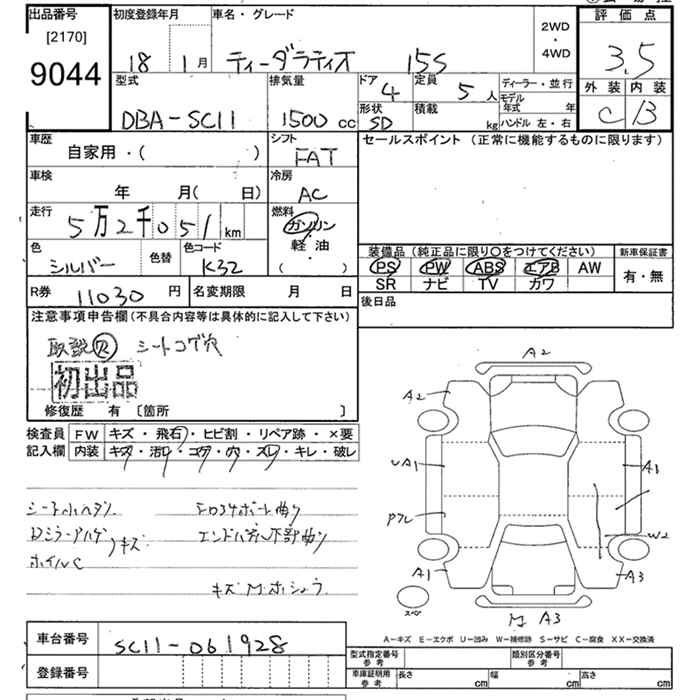 出品番号 初度登録年月 車名・グレード 2WD・4WD 評価点
[2170]
9044 18 1月 ティーダラティオ 15S 3.5
型式 排気量 ドア 4 定員 5人 ディーラー・並行 外装 内装
DBA-SC11 1500cc 形状 SD 積載 kg モデル年式 年 ハンドル 左・右 C B
車歴 自家用・( ) シフト FAT セールスポイント (正常に機能するものに限ります)
車検 年 月( 日) 冷房 AC
走行 5万2千051km 燃料 ガソリン・軽油・( )
色 シルバー 色替 色コード K32
装備品 (純正品に限り○をつけてください) 新車保証書
PS PW ABS エアB AW 有・無
SR ナビ TV カワ
R券 11030円 名変期限 月 日 後日品
注意事項申告欄(不具合内容等は具体的に記入して下さい)
取説 シートコゲ穴
初出品
修復歴 有 [箇所 ]
検査員記入欄 FW キズ・飛石・ヒビ割・リペア跡・×要
内装 キズ・汚レ・コゲ・穴・スレ・キレ・破レ
A2
A2
A1
A1
W2
A1
A3
スペア
A3
キズ
エンドパネル下部曲り
A-キズ E-エクボ U-凹み W-補修跡 S-サビ C-腐食 XX-交換済
車台番号 SC11-061928
登録番号
型式指定番号 参考 類別区分番号 参考
車庫証明用 参考 長さ cm 幅 cm 高さ cm